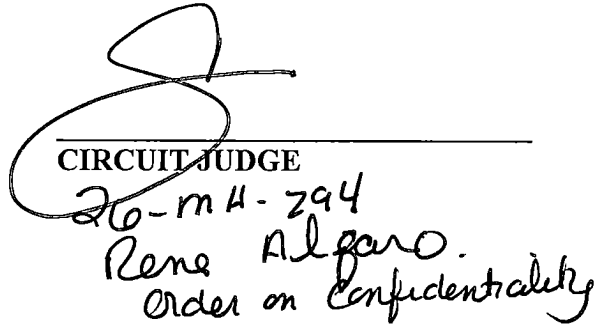 CIRCUIT JUDGE
26-MH-294
Rene Alfaro.
Order on Confidentiality